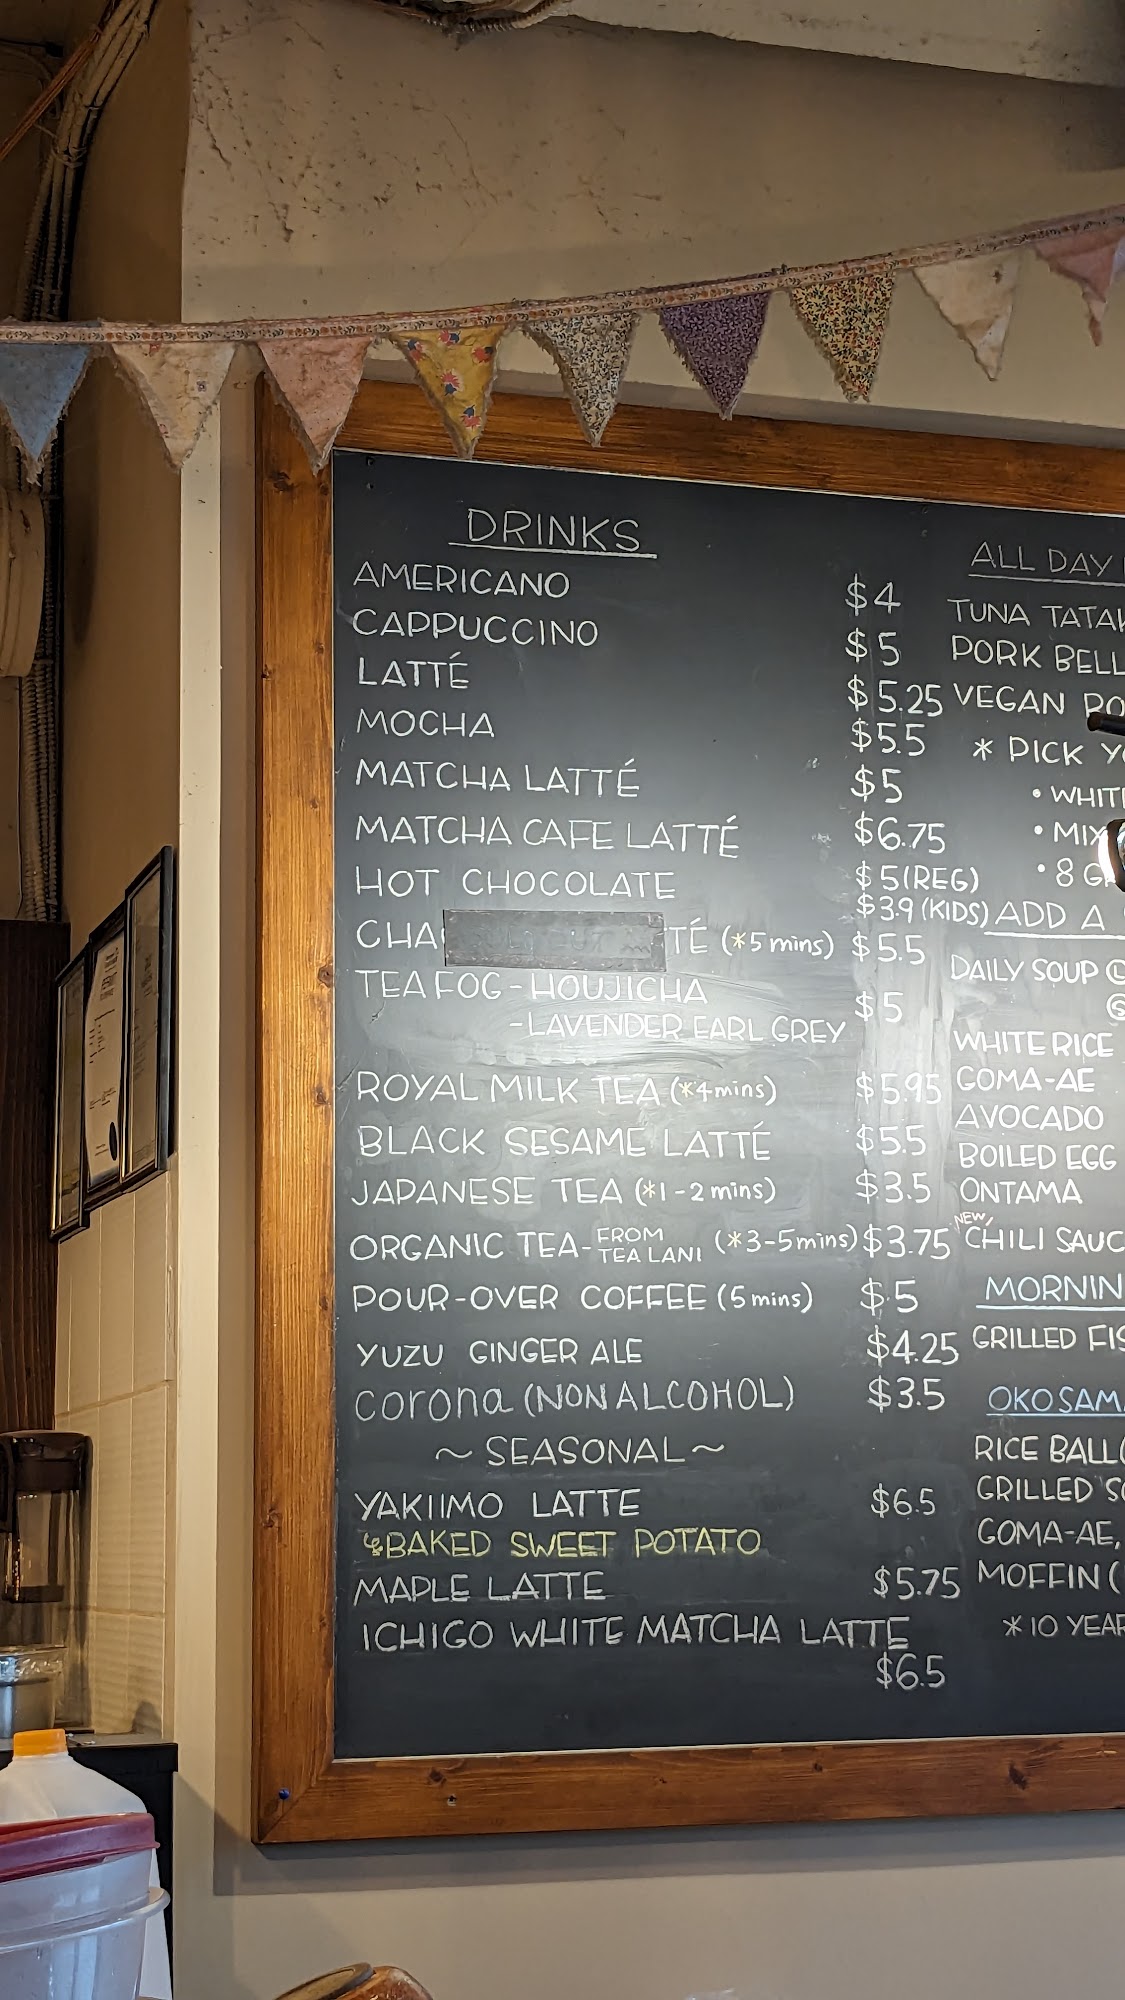 DRINKS
AMERICANO $4
CAPPUCCINO $5
LATTÉ $5.25
MOCHA $5.5
MATCHA LATTÉ $5
MATCHA CAFE LATTÉ $6.75
HOT CHOCOLATE $5(REG)
$3.9(KIDS)
CHA TÉ (*5mins) $5.5
TEA FOG - HOUJICHA $5
- LAVENDER EARL GREY
ROYAL MILK TEA (*4mins) $5.95
BLACK SESAME LATTÉ $5.5
JAPANESE TEA (*1-2mins) $3.5
ORGANIC TEA- FROM TEA LANI (*3-5mins) $3.75
POUR-OVER COFFEE (5mins) $5
YUZU GINGER ALE $4.25
corona (NON ALCOHOL) $3.5
~ SEASONAL ~
YAKIIMO LATTE $6.5
↳BAKED SWEET POTATO
MAPLE LATTE $5.75
ICHIGO WHITE MATCHA LATTE
$6.5
ALL DAY
TUNA TATAK
PORK BELL
VEGAN
* PICK
• WHIT
• MIX
• 8
ADD A
DAILY SOUP Ⓛ
Ⓢ
WHITE RICE
GOMA-AE
AVOCADO
BOILED EGG
ONTAMA
NEW CHILI SAUC
MORNIN
GRILLED FIS
OKOSAMA
RICE BALL(
GRILLED
GOMA-AE,
MOFFIN (
*10 YEAR